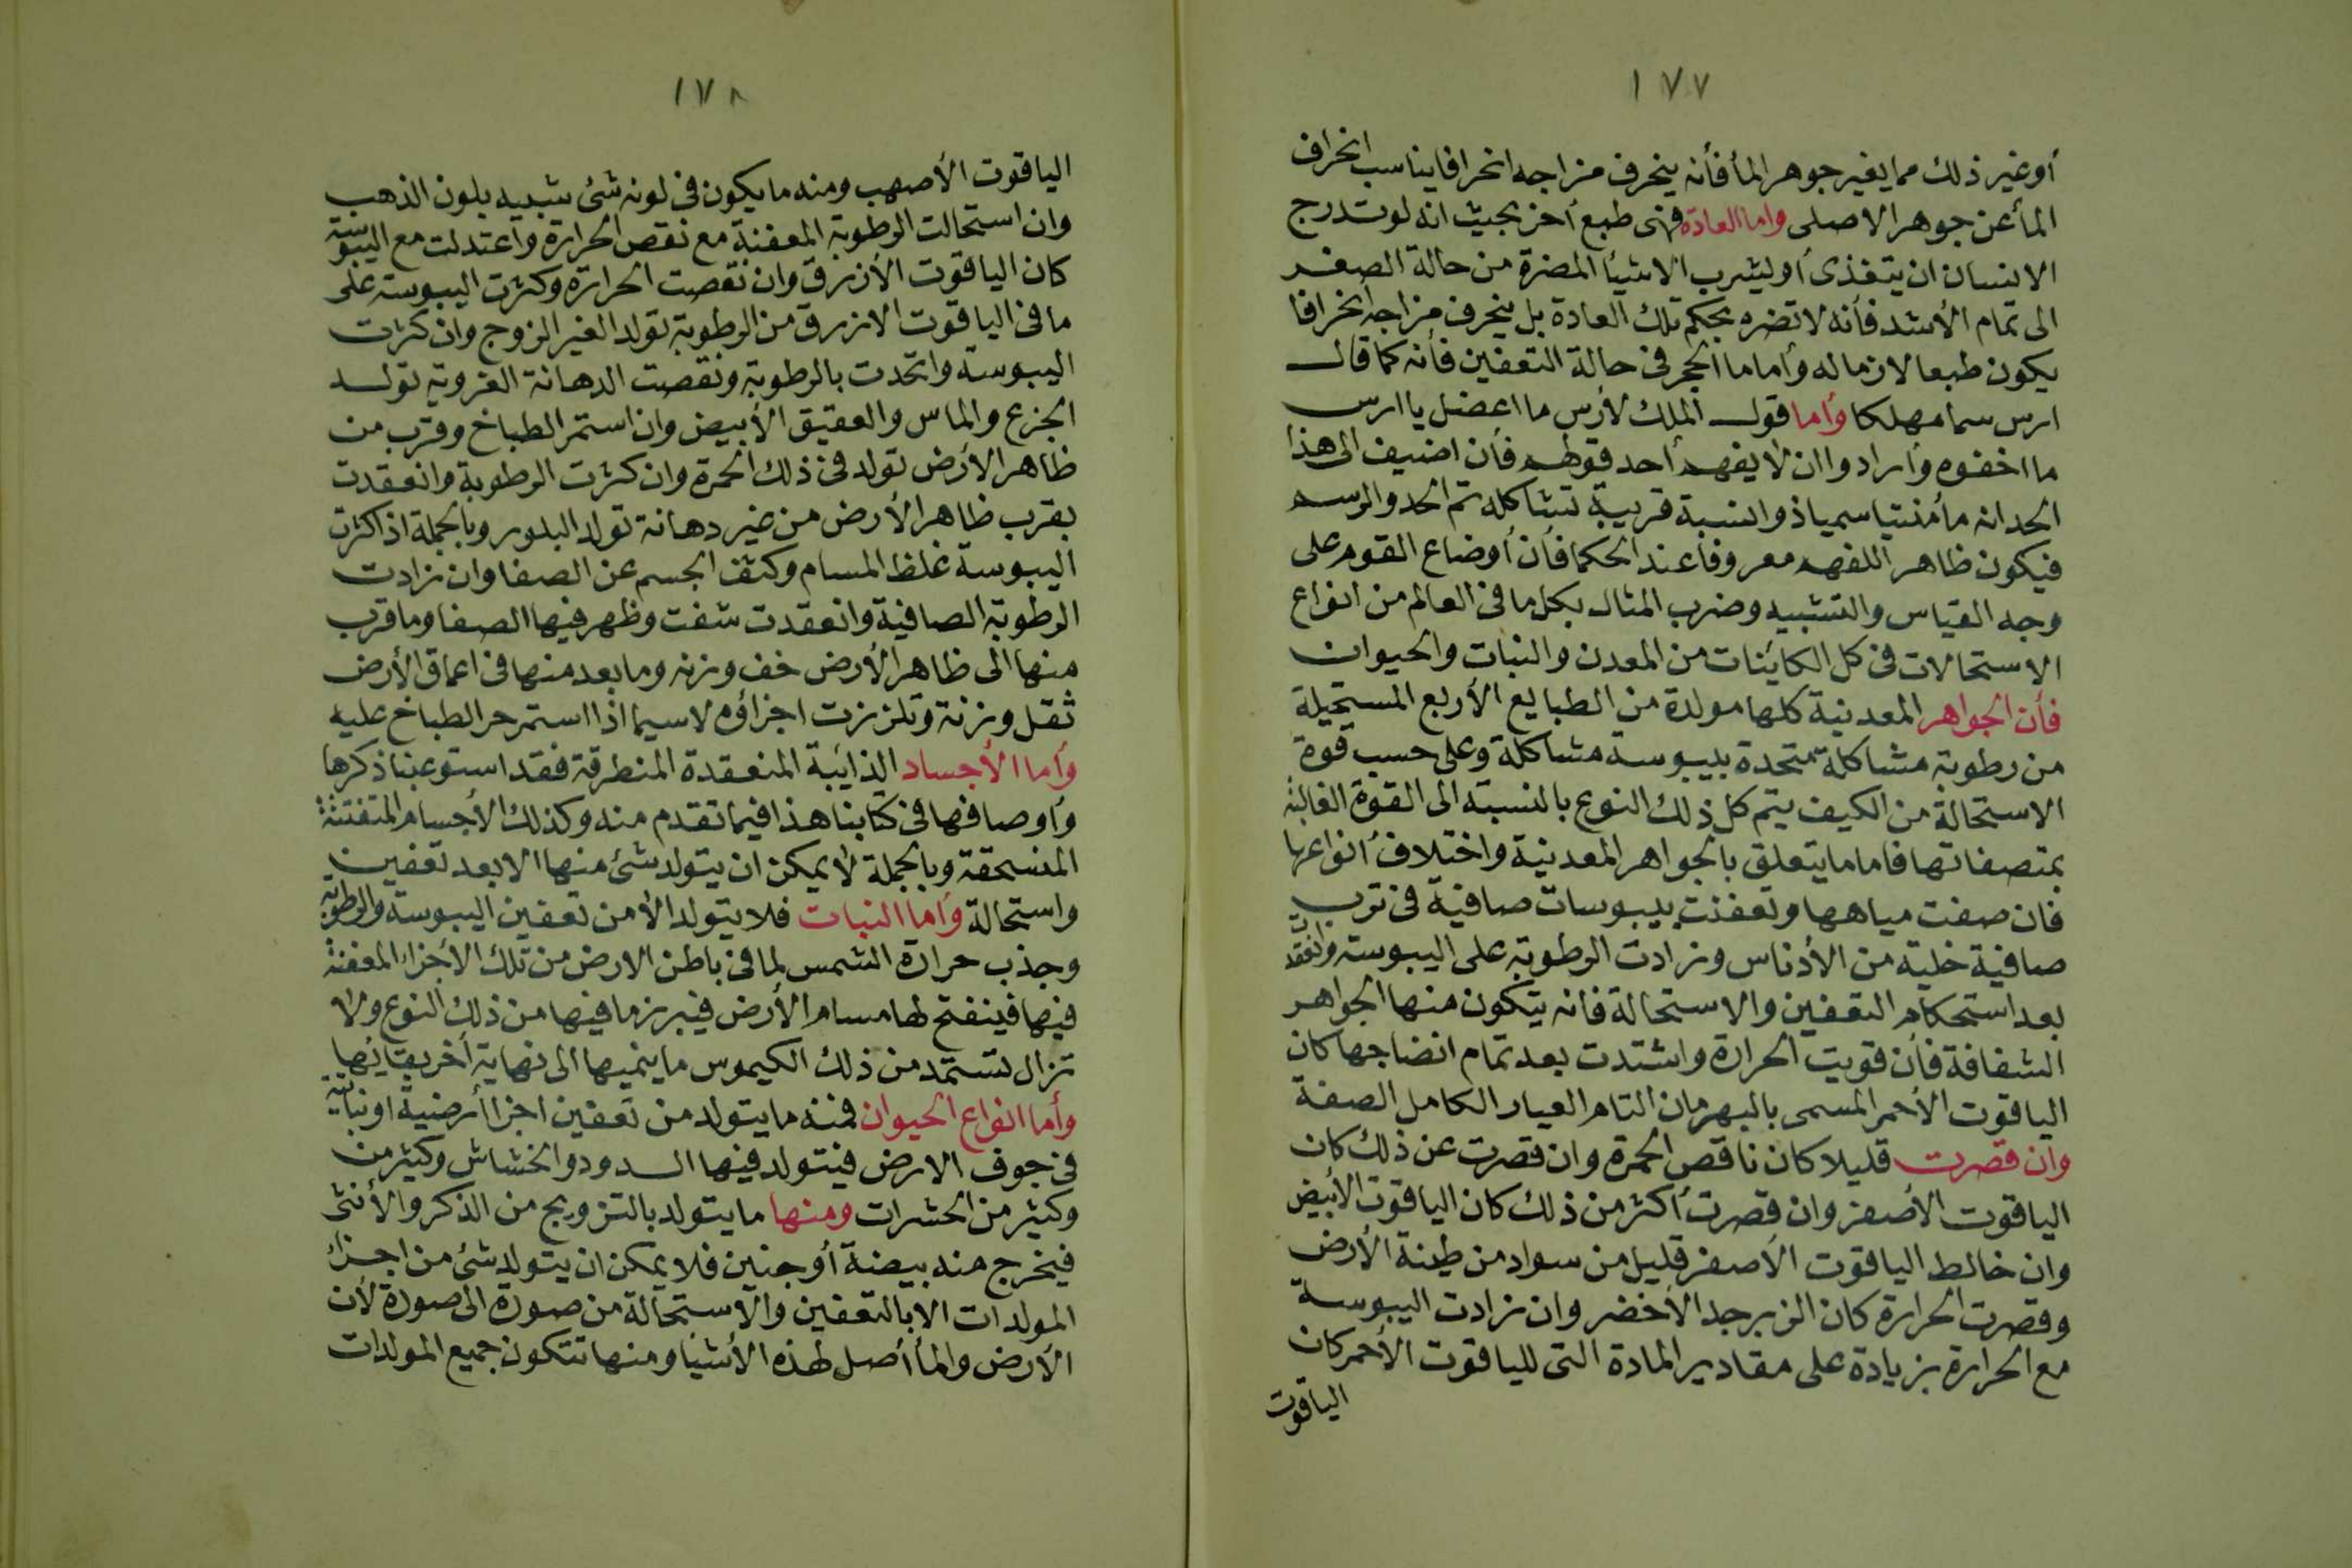 ١٧٧
أوغير ذلك مما يغير جوهر المأ فأنه ينحرف مزاجه انحرافا يناسب انحراف
المأ عن جوهر الاصلى واما العادة فهى طبع أخر بحيث انه لو تدرج
الانسان ان يتغذى أو ليشرب الاشيأ المضرة من حالة الصغر
الى تمام الأشد فأنه لا تضره بحكم تلك العادة بل ينحرف مزاجه أنخرافا
يكون طبعا لازما له وأما ما الحجر فى حالة التعفين فأنه كما قال
ارس سما مهلكا وأما قول الملك لأرس ما اعضل يا ارس
ما اخفوه وأرادوا ان لا يفهم أحد قولهم فأن اضيف الى هذا
الحد انه مأمنتيا سمياذ والنسبة قريبة تشاكله تم الحد والرسم
فيكون ظاهر اللفهم معروفا عند الحكما فأن أوضاع القوم على
وجه القياس والتشبيه وضرب المثال بكل ما فى العالم من انواع
الاستحالات فى كل الكاينات من المعدن والنبات والحيوان
فأن الجواهر المعدنية كلها مولدة من الطبايع الأربع المستحيلة
من رطوبة مشاكلة متحدة بيبوسة مشاكلة وعلى حسب قوة
الاستحالة من الكيف يتم كل ذلك النوع بالنسبة الى القوة الغالبة
بمتصفاتها فاما ما يتعلق بالجواهر المعدنية واختلاف أنواعها
فان صفت مياهها وتعفنت بيبوسات صافية فى ترب
صافية خلية من الأدناس وزادت الرطوبة على اليبوسة وانعقدت
بعد استحكام التعفين والاستحالة فانه يتكون منها الجواهر
الشفافة فأن قويت الحرارة واشتدت بعد تمام انضاجها كان
الياقوت الأحمر المسمى بالبهرمان التام العيار الكامل الصفة
وان قصرت قليلا كان ناقص الحمرة وان قصرت عن ذلك كان
الياقوت الأصفر وان قصرت أكثر من ذلك كان الياقوت الأبيض
وان خالط الياقوت الأصفر قليل من سواد من طينة الأرض
وقصرت الحرارة كان الزبرجد الأخضر وان زادت اليبوسة
مع الحرارة بزيادة على مقادير المادة التى للياقوت الأحمر كان
الياقوت
١٧٨
الياقوت الأصهب ومنه ما يكون فى لونه شئ شبيه بلون الذهب
وان استحالت الرطوبة المعفنة مع نقص الحرارة واعتدلت مع اليبوسة
كان الياقوت الأزرق وان نقصت الحرارة وكثرت اليبوسة على
ما فى الياقوت الازرق من الرطوبة تولد الغيرالزوج وان كثرت
اليبوسة واتحدت بالرطوبة ونقصت الدهانة الغروية تولد
الجزع والماس والعقيق الأبيض وان استمر الطباخ وقرب من
ظاهر الأرض تولد فى ذلك الحمرة وان كثرت الرطوبة وانعقدت
بقرب ظاهر الأرض من غير دهانة تولد البلور وبالجملة اذ اكثرت
اليبوسة غلظ المسام وكثف الجسم عن الصفا وان زادت
الرطوبة الصافية وانعقدت شفت وظهر فيها الصفا وما قرب
منها الى ظاهر الأرض خف وزنه وما بعد منها فى اعماق الأرض
ثقل وزنة وتلززت اجزاؤه لاسيما اذا استمر حر الطباخ عليه
وأما الأجساد الذايبة المنعقدة المنطرقة فقد استوعبنا ذكرها
وأوصافها فى كتابنا هذا فيما تقدم منه وكذلك الأجسام المتفتتة
المنسحقة وبالجملة لا يمكن ان يتولد شئ منها الا بعد تعفين
واستحالة وأما النبات فلا يتولد الأ من تعفين اليبوسة والرطوبة
وجذب حرارة الشمس لما فى باطن الارض من تلك الأجزاء المعفنة
فيها فينفتح لها مسام الأرض فيبرز ما فيها من ذلك النوع ولا
تزال تستمد من ذلك الكيموس ما ينميها الى نهاية أخر بقايها
وأما انواع الحيوان فمنه ما يتولد من تعفين اجزا أرضية او نباتية
فى جوف الارض فيتولد فيها الدود والخشاش وكثير من
وكثير من الحشرات ومنها ما يتولد بالتزويج من الذكر والأنثى
فيخرج منه بيضة أو جنين فلا يمكن ان يتولد شئ من اجزاء
المولدات الا بالتعفين والاستحالة من صورة الى صورة لأن
الأرض والمأ أصل لهذه الأشيا ومنها تتكون جميع المولدات